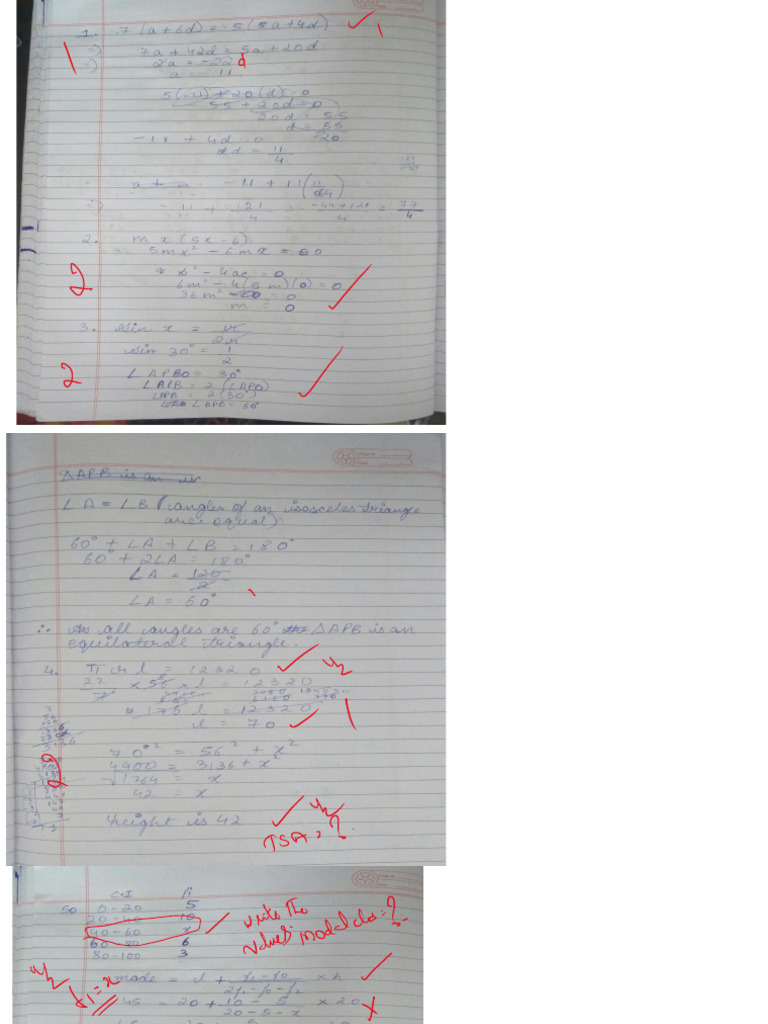 1. 7(a+6d) = 5(5a+4d)
1
1
=) 7a + 42d = 5a + 20d
=) 2a = -22 d
a = -11
5(-11) + 20(d) = 0
55 + 20d = 0
20d = 55
d = 55
20
-11 + 4d = 0
dd = 11
4
-11 + 11(11
-11 + 121 = -44+121 = 77
4 4 4
2. mx(5x-6)
5mx² - 6mx = 0
b² - 4ac = 0
2
6m² - 4(5m)(0) = 0
36m² = 0
m = 0
3. Sin x = r
2r
Sin 30° = 1
2
∠APBO = 30°
2
∠APB = 2(∠APO)
∠APB = 2(30°)
∠APB = 60°
△APB is an is
∠A = ∠B (angles of an isosceles triangle
are equal)
60° + ∠A + ∠B = 180°
60° + 2∠A = 180°
∠A = 120
2
∠A = 60°
∴ As all angles are 60° △APB is an
equilateral triangle.
4. π r l = 12320
22 × 56 × l = 12320
7
176 l = 12320
l = 70
1
70² = 56² + x²
4900 = 3136 + x²
√1764 = x
2
42 = x
height is 42
TSA = ?
C.I fi
50 0-20 5
20-40 10
40-60 x
60-80 6
80-100 3
write the
values. modal class = ?
f1 = x
mode = l + f1-f0 × h
2f1-f0-f2
45 = 20 + 10 - 5 × 20
20-5-x